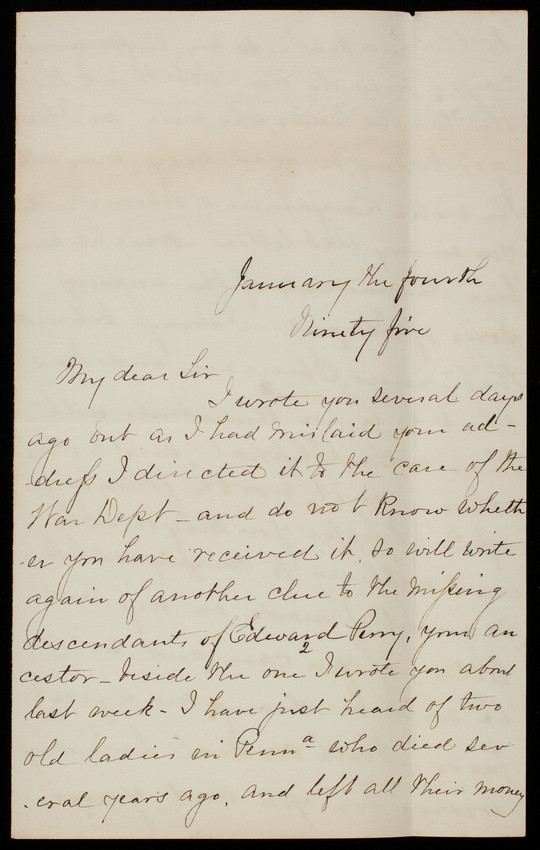 January the fourth
Ninety five
My dear Sir
I wrote you several days
ago but as I had mislaid your ad-
-dress I directed it to the care of the
War Dept - and do not know wheth
-er you have received it, so will write
again of another clue to the missing
descendants of Edward Perry, your an
cestor - beside the one I wrote you about
2
last week - I have just heard of two
old ladies in Penna who died sev
-eral years ago, and left all their money